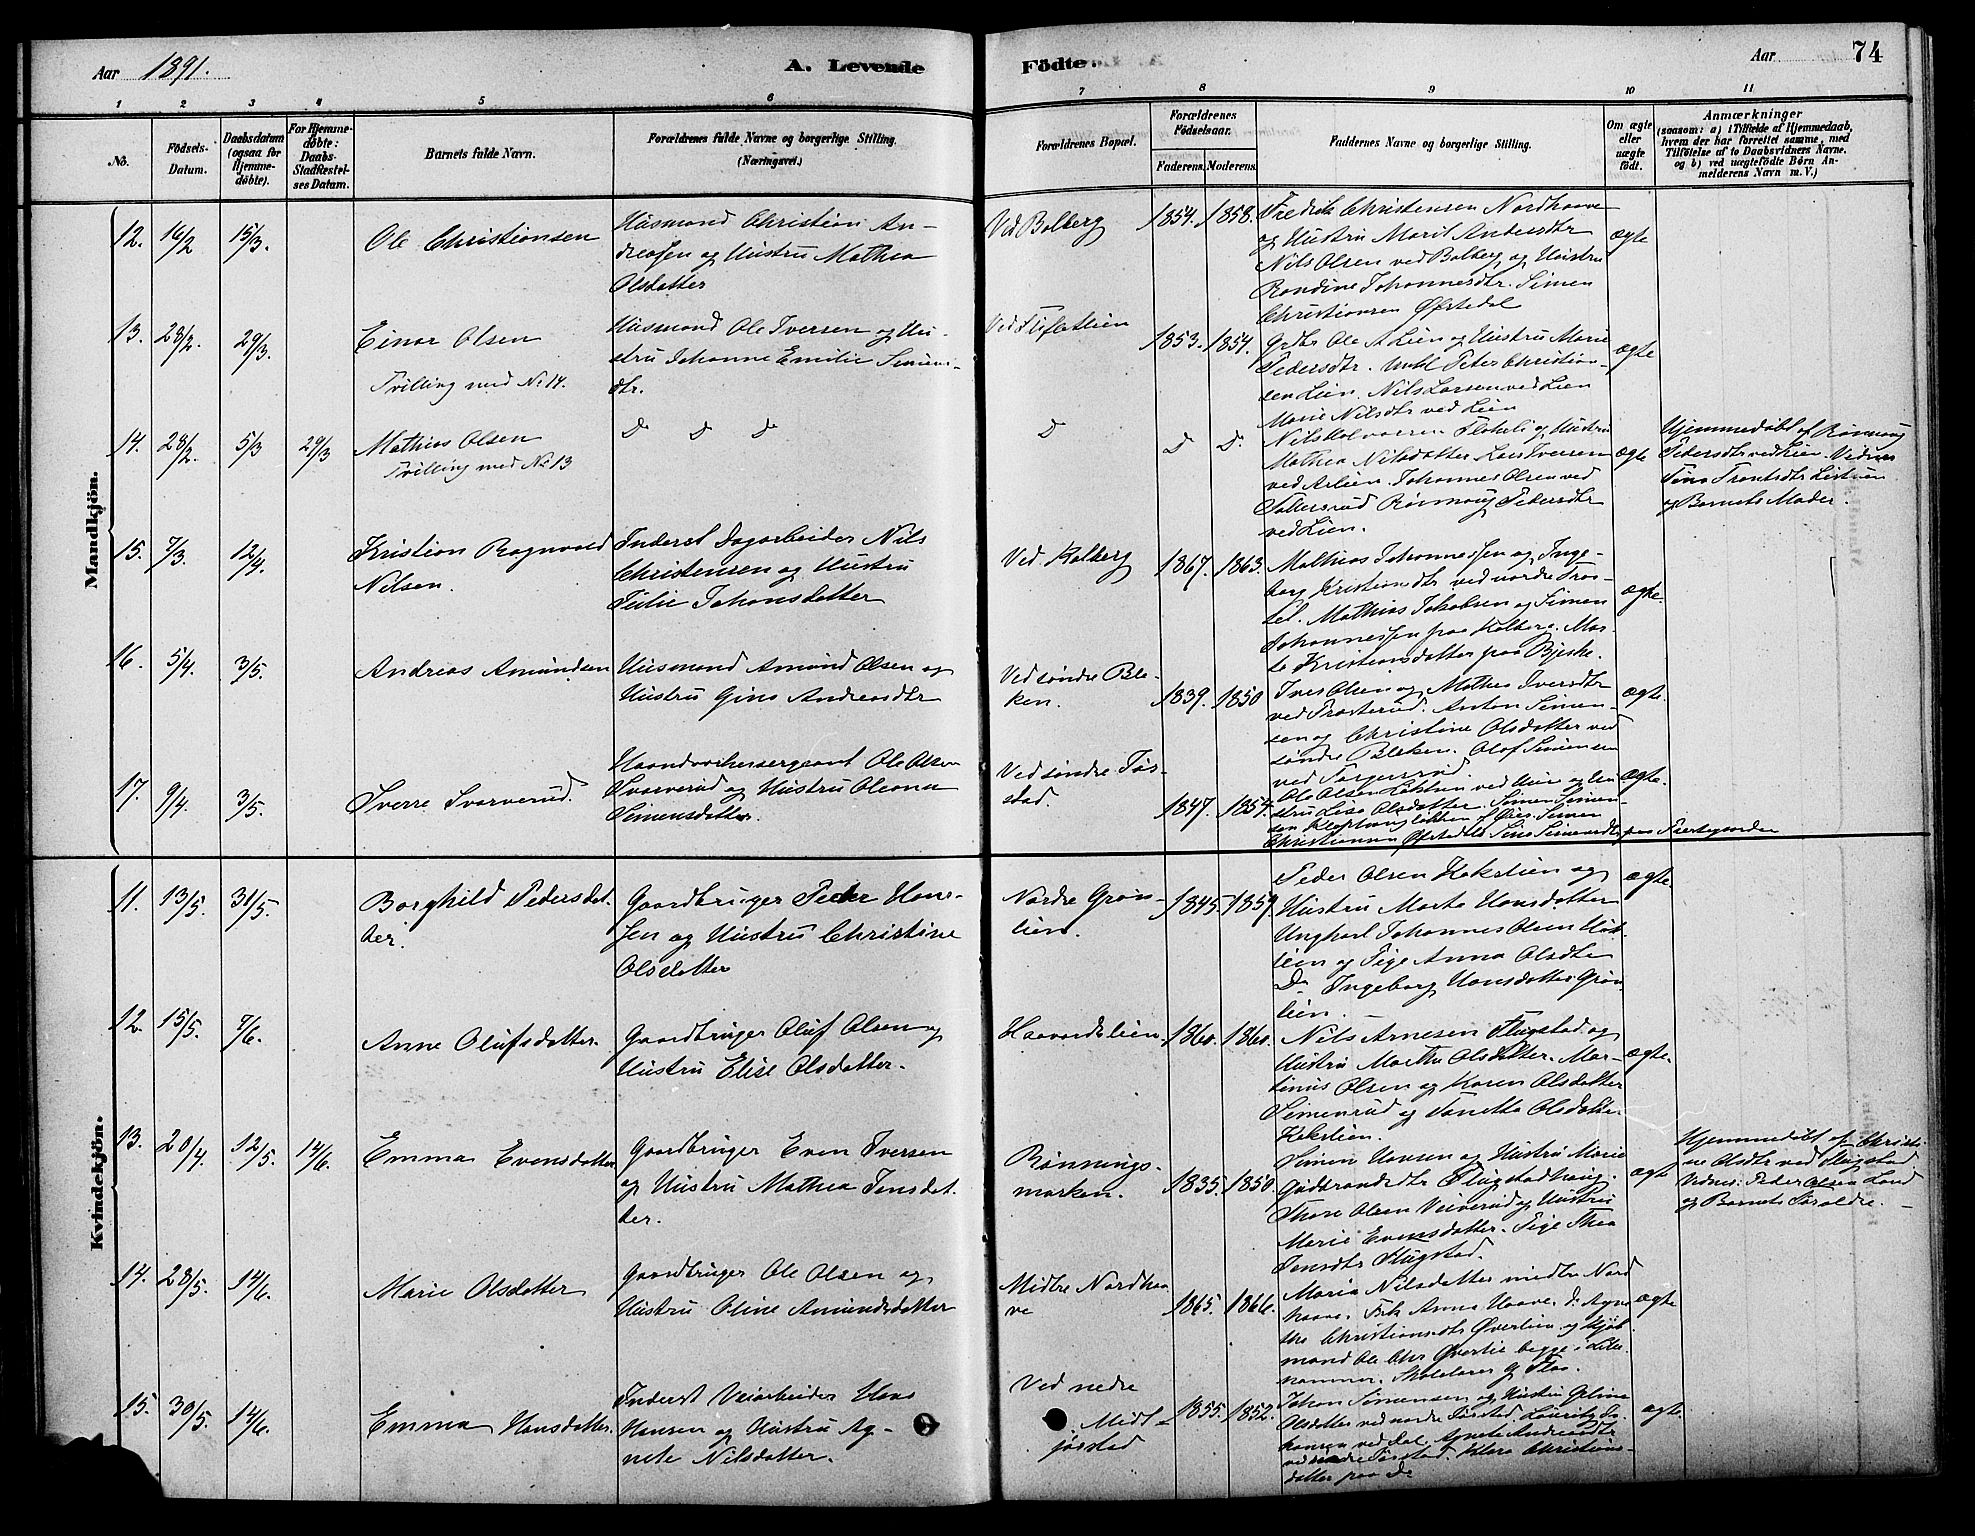 Aar 1891.
A. Levende Födte.
Aar 74
1 2 3 4 5 6 7 8 9 10 11
No.
Födsels-
Datum.
Daabsdatum
(ogsaa for
Hjemme-
döbte).
For Hjemme-
döbte:
Daabs-
Stadfæstel-
ses Datum.
Barnets fulde Navn.
Forældrenes fulde Navne og borgerlige Stilling.
(Næringsvei.)
Forældrenes Bopæl.
Forældrenes
Födselsaar.
Faderens. Moderens.
Faddernes Navne og borgerlige Stilling.
Om ægte
eller
uægte
födt.
Anmærkninger
(saasom: a) i Tilfælde af Hjemmedaab,
hvem der har forrettet samme, med
Tilföielse af to Daabsvidners Navne.
og b) ved uægtefödte Börn An-
melderens Navn m. V.)
Mandkjön.
12. 15/3.
Ole Christiansen
Husmand Christian An-
dreasen og Hustru Mathea
Olsdatter
Ved Bolberg
1854. 1858.
Fredrik Christensen Nordhaave
og Hustru Marit Andersdtr
Nils Olsen ved Bolberg og Hustru
Randine Johannesdtr. Simen
Christiansen Øfstedal
ægte
13. 28/2. 29/3.
Einar Olsen
Tvilling med No 14.
Husmand Ole Iversen og Hu-
stru Johanne Emilie Simens-
dtr.
1853. 1854.
Grdbr. Ole A Lien og Hustru Marie
Pedersdtr. Unkl Peter Christian-
sen Lien. Nils Larsen ved Lien
Marie Nilsdtr ved Lien
ægte
14. 28/2 5/3 29/3
Mathias Olsen
Tvilling med No 13
Do Do Do
Do
Do Do.
Nils Halvorsen og Hustru
Mathea Nilsdatter Lars Iversen
ved Johannes Olsen ved
Rönnaug Pedersdtr
ved Lien.
ægte
Hjemmedöbt af Rönnaug
Pedersdtr ved Lien. Vidner
og Barnets Moder.
15. 7/3. 12/4.
Kristian Ragnvald
Nilsen.
Inderst Dagarbeider Nils
Christensen og Hustru
Julie Johansdatter
Ved Kolberg
1867. 1863.
Mathias Johannessen og Inge-
borg Kristiansdtr ved nordre Tros-
set. Mathias Jakobsen og Simen
Johannessen paa Kolberg. Mar-
te Kristiansdatter paa Bjerke.
ægte.
16. 5/4. 3/5.
Andreas Amundsen
Husmand Amund Olsen og
Hustru Gina Andreasdtr
Ved söndre Ble-
ken.
1839. 1850
Iver Olsen og Mathea Iversdtr
ved Trosterud. Anton Simen-
sen og Christine Olsdatter ved
söndre Bleken. Olof Simensen
ved
ægte.
17. 9/4. 3/5.
Sverre Svarverud.
Haandverkersergeant Ole Olsen
Svarverud og Hustru Oleana
Simensdatter.
Ved söndre Jør-
stad.
1847. 1854.
Ole Olsen
stru Lise Olsdatter. Simen Simen-
sen
Christiansen Øfstedal.
ægte.
Kvindekjön.
11. 13/5. 31/5.
Borghild Pedersdat-
ter.
Gaardbruger Peder Han-
sen og Hustru Christine
Olsdatter
Nordre Grøn-
lien.
1845. 1859.
Peder Olsen Kokslien og
Hustru Marte Hansdatter
Ungkarl Johannes Olsen
lien og Pige Anna Olsdtr
Do Ingeborg Hansdatter Grøn-
lien.
ægte
12. 15/5. 7/6.
Anne Olufsdatter.
Gaardbruger Oluf Olsen og
Hustru Elise Olsdatter.
Haavardslien
1860. 1860.
Nils Arnesen Flugstad og
Hustru Marthe Olsdatter. Mar-
tinus Olsen og Karen Olsdatter
Simenrud og Olsdatter
Kokslien.
ægte.
13. 20/4. 12/5. 14/6.
Emma Evensdatter
Gaardbruger Even Iversen
og Hustru Mathea Jensdat-
ter.
Rønnings-
marken.
1835. 1850.
Simen Hansen og Hustru Marie
Gudbrandsdtr Flugstadhaug.
Thore Olsen og Hustru
Marie Evensdatter. Pige Thea
Jensdtr Flugstad.
ægte
Hjemmedöbt af Christi-
ne Olsdtr ved Flugstad
Vidner: Peder Olsen Lund
og Barnets Forældre.
14. 28/5. 14/6.
Marie Olsdatter
Gaardbruger Ole Olsen og
Hustru Oline Amundsdatter
Midtre Nordhaa-
ve
1865. 1866.
Maria Nilsdatter midtre Nord-
haave. Frk Anna Haave. Do
Christiansdtr Øverlien og Kjøb-
mand Ole Chr Øverlie begge i Lille-
hammer. Skolelærer G.
ægte
15. 30/5. 14/6.
Emma Hansdatter.
Inderst Veiarbeider Hans
Hansen og Hustru Ag-
nete Nilsdatter.
Ved nedre
Midt-
jørstad
1855. 1852.
Johan Simensen og Hustru
Olsdatter ved nordre Jørstad.
ved Dal. Agnete Andreasdtr
ved Jørstad. Klara Christians-
datter paa Do
ægte.